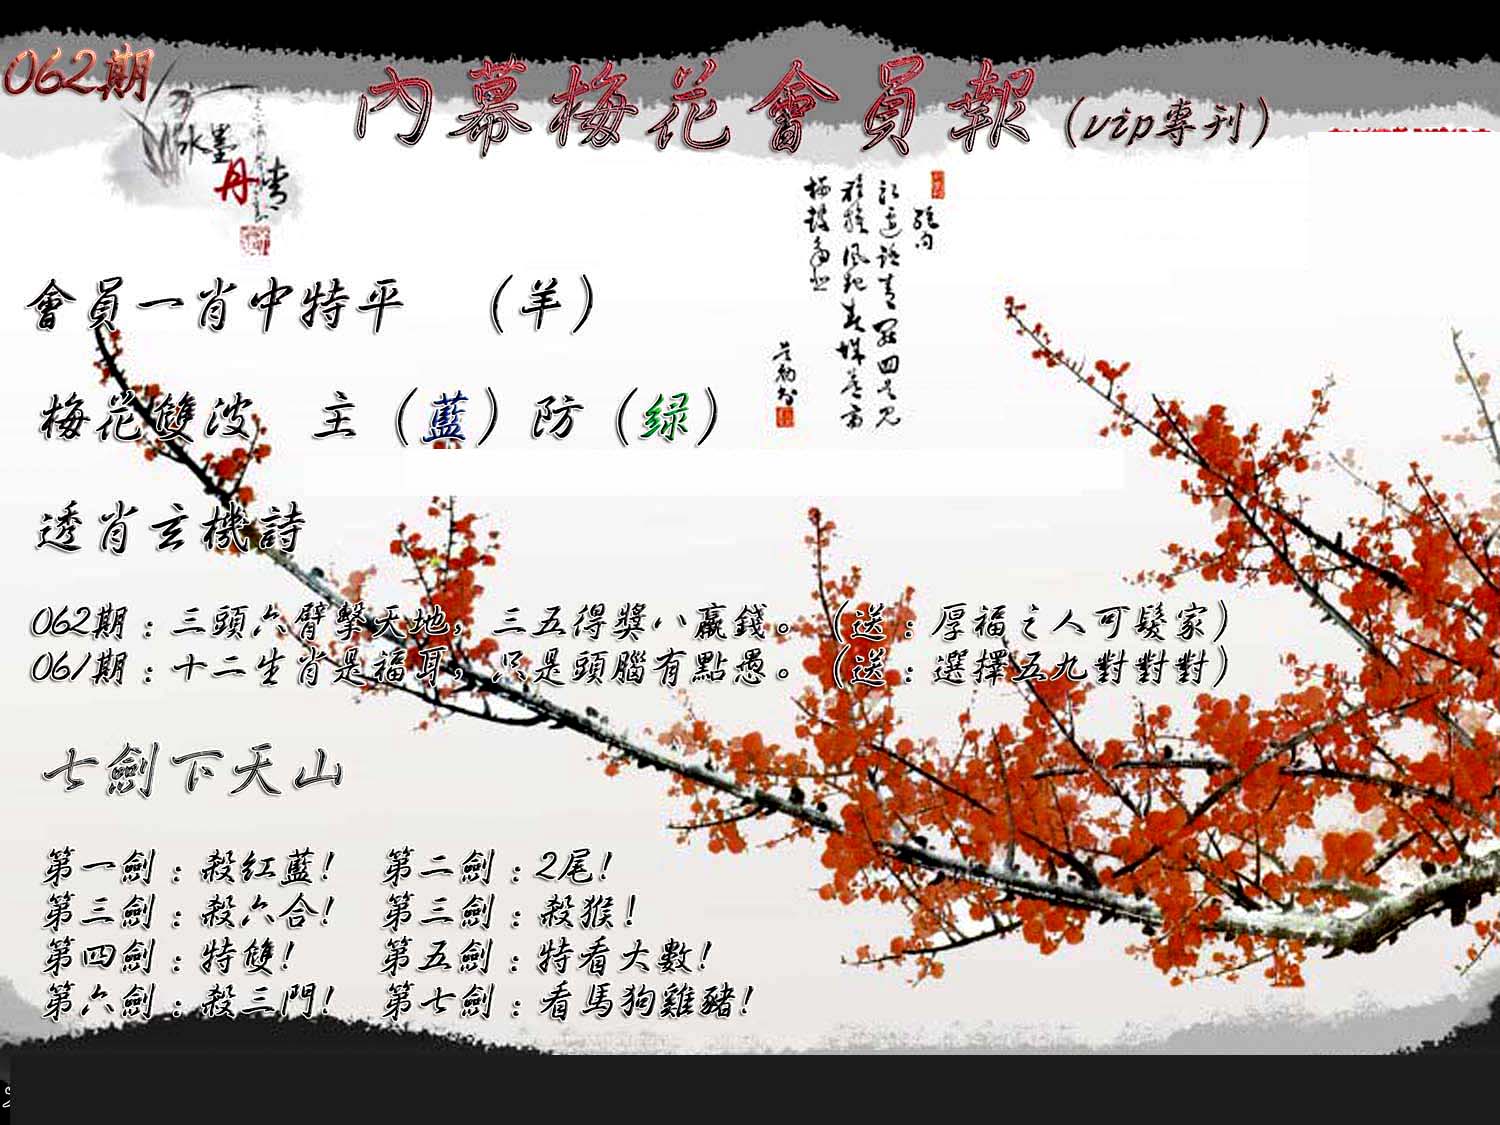 062期
內幕梅花會員報(vip專刊)
水墨
丹青
會員一肖中特平 (羊)
梅花雙波 主(藍)防(绿)
透肖玄機詩
062期:三頭六臂擊天地,三五得獎八贏錢。(送:厚福之人可髮家)
061期:十二生肖是福耳,只是頭腦有點愚。(送:選擇五九對對對)
七劍下天山
第一劍:殺紅藍! 第二劍:2尾!
第三劍:殺六合! 第三劍:殺猴!
第四劍:特雙! 第五劍:特看大數!
第六劍:殺三門! 第七劍:看馬狗雞豬!